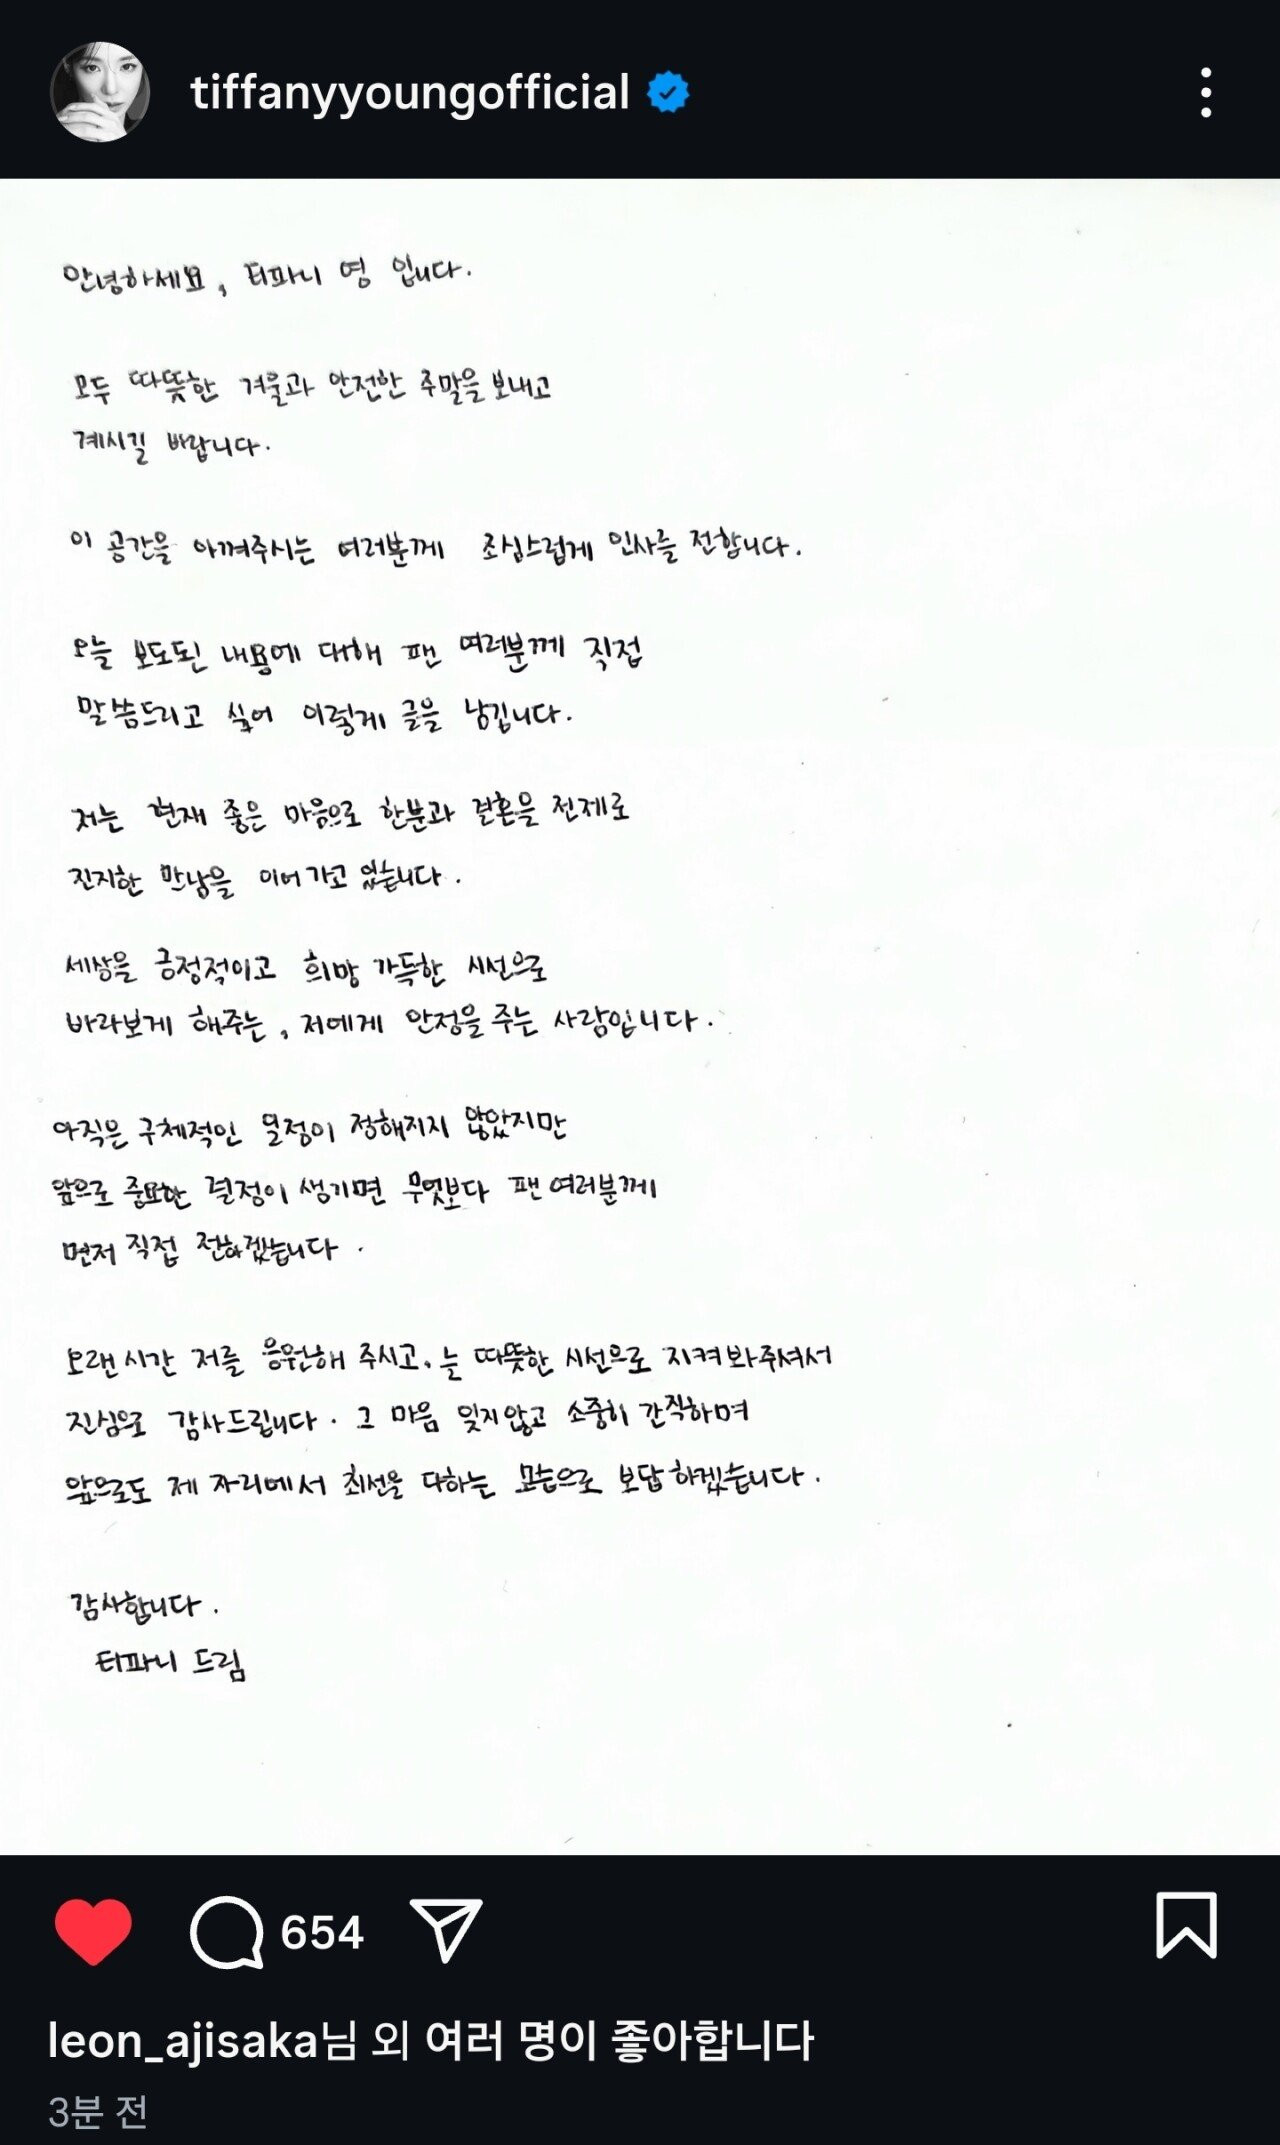 tiffanyyoungofficial
안녕하세요, 티파니 영 입니다.
모두 따뜻한 겨울과 안전한 주말을 보내고
계시길 바랍니다.
이 공간을 아껴주시는 여러분께 조심스럽게 인사를 전합니다.
오늘 보도된 내용에 대해 팬 여러분께 직접
말씀드리고 싶어 이렇게 글을 남깁니다.
저는 현재 좋은 마음으로 한분과 결혼을 전제로
진지한 만남을 이어가고 있습니다.
세상을 긍정적이고 희망 가득한 시선으로
바라보게 해주는, 저에게 안정을 주는 사람입니다.
아직은 구체적인 일정이 정해지지 않았지만
앞으로 중요한 결정이 생기면 무엇보다 팬 여러분께
먼저 직접 전하겠습니다.
오랜 시간 저를 응원해 주시고, 늘 따뜻한 시선으로 지켜봐주셔서
진심으로 감사드립니다. 그 마음 잊지않고 소중히 간직하며
앞으로도 제 자리에서 최선을 다하는 모습으로 보답하겠습니다.
감사합니다.
티파니 드림
654
leon_ajisaka님 외 여러 명이 좋아합니다
3분 전